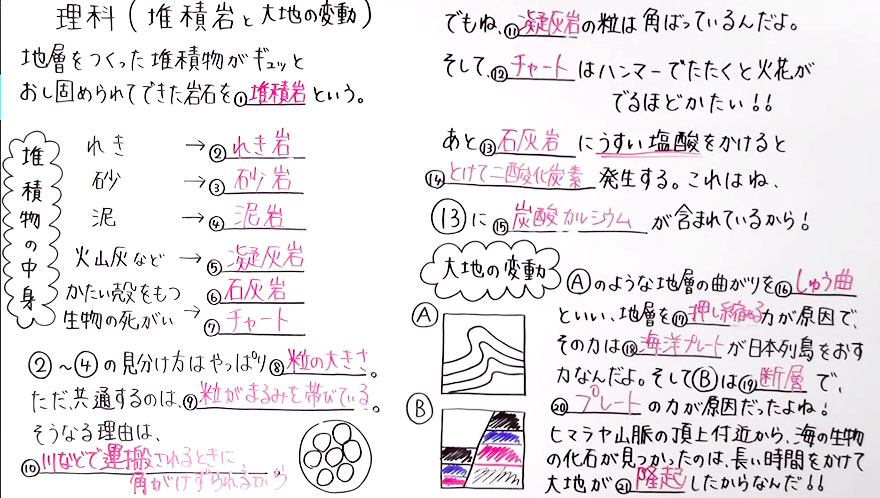 理科(堆積岩と大地の変動)
地層をつくった堆積物がギュッと
おし固められてできた岩石を①堆積岩という。
堆積物の中身
れき→②れき岩
砂→③砂岩
泥→④泥岩
火山灰など→⑤凝灰岩
かたい殻をもつ
生物の死がい→⑥石灰岩
⑦チャート
②～④の見分け方はやっぱり⑧粒の大きさ。
ただ、共通するのは、⑨粒がまるみを帯びている。
そうなる理由は、
⑩川などで運搬されるときに
角がけずられるから
でもね、⑪凝灰岩の粒は角ばっているんだよ。
そして、⑫チャートはハンマーでたたくと火花が
でるほどかたい!!
あと⑬石灰岩にうすい塩酸をかけると
⑭とけて二酸化炭素発生する。これはね、
⑬に⑮炭酸カルシウムが含まれているから!
大地の変動
Ⓐ
Ⓑ
Ⓐのような地層の曲がりを⑯しゅう曲
といい、地層を⑰押し縮める力が原因で、
その力は⑱海洋プレートが日本列島をおす
力なんだよ。そしてⒷは⑲断層で、
⑳プレートの力が原因だったよね!
ヒマラヤ山脈の頂上付近から、海の生物
の化石が見つかったのは、長い時間をかけて
大地が㉑隆起したからなんだ!!